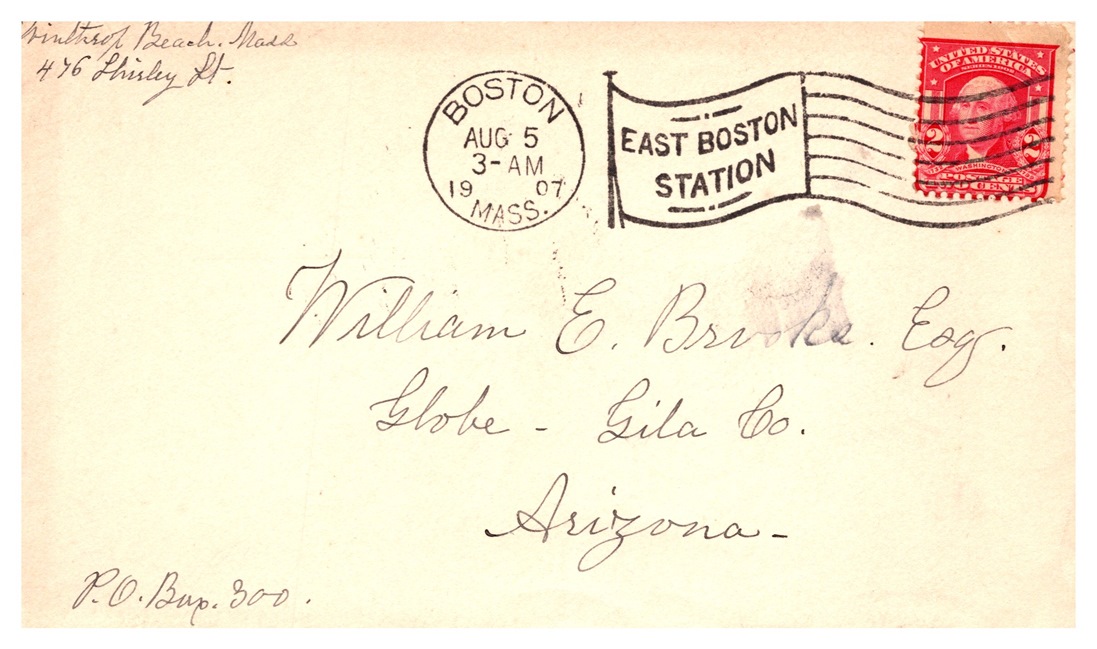 Winthrop Beach. Mass
476 Shirley St.
BOSTON
AUG 5
3-AM
19 07
MASS.
EAST BOSTON
STATION
UNITED STATES
OF AMERICA
SERIES 1902
2 2
WASHINGTON
POSTAGE
TWO CENTS
William E. Brooke. Esq.
Globe - Gila Co.
Arizona -
P.O. Box. 300.